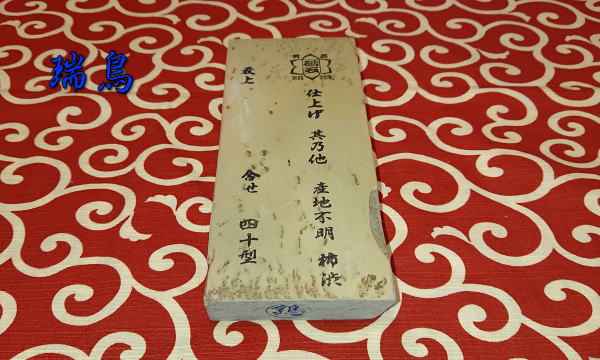 瑞鳥
最上 合せ 四十型
仕上げ 其乃他 産地不明 柿渋